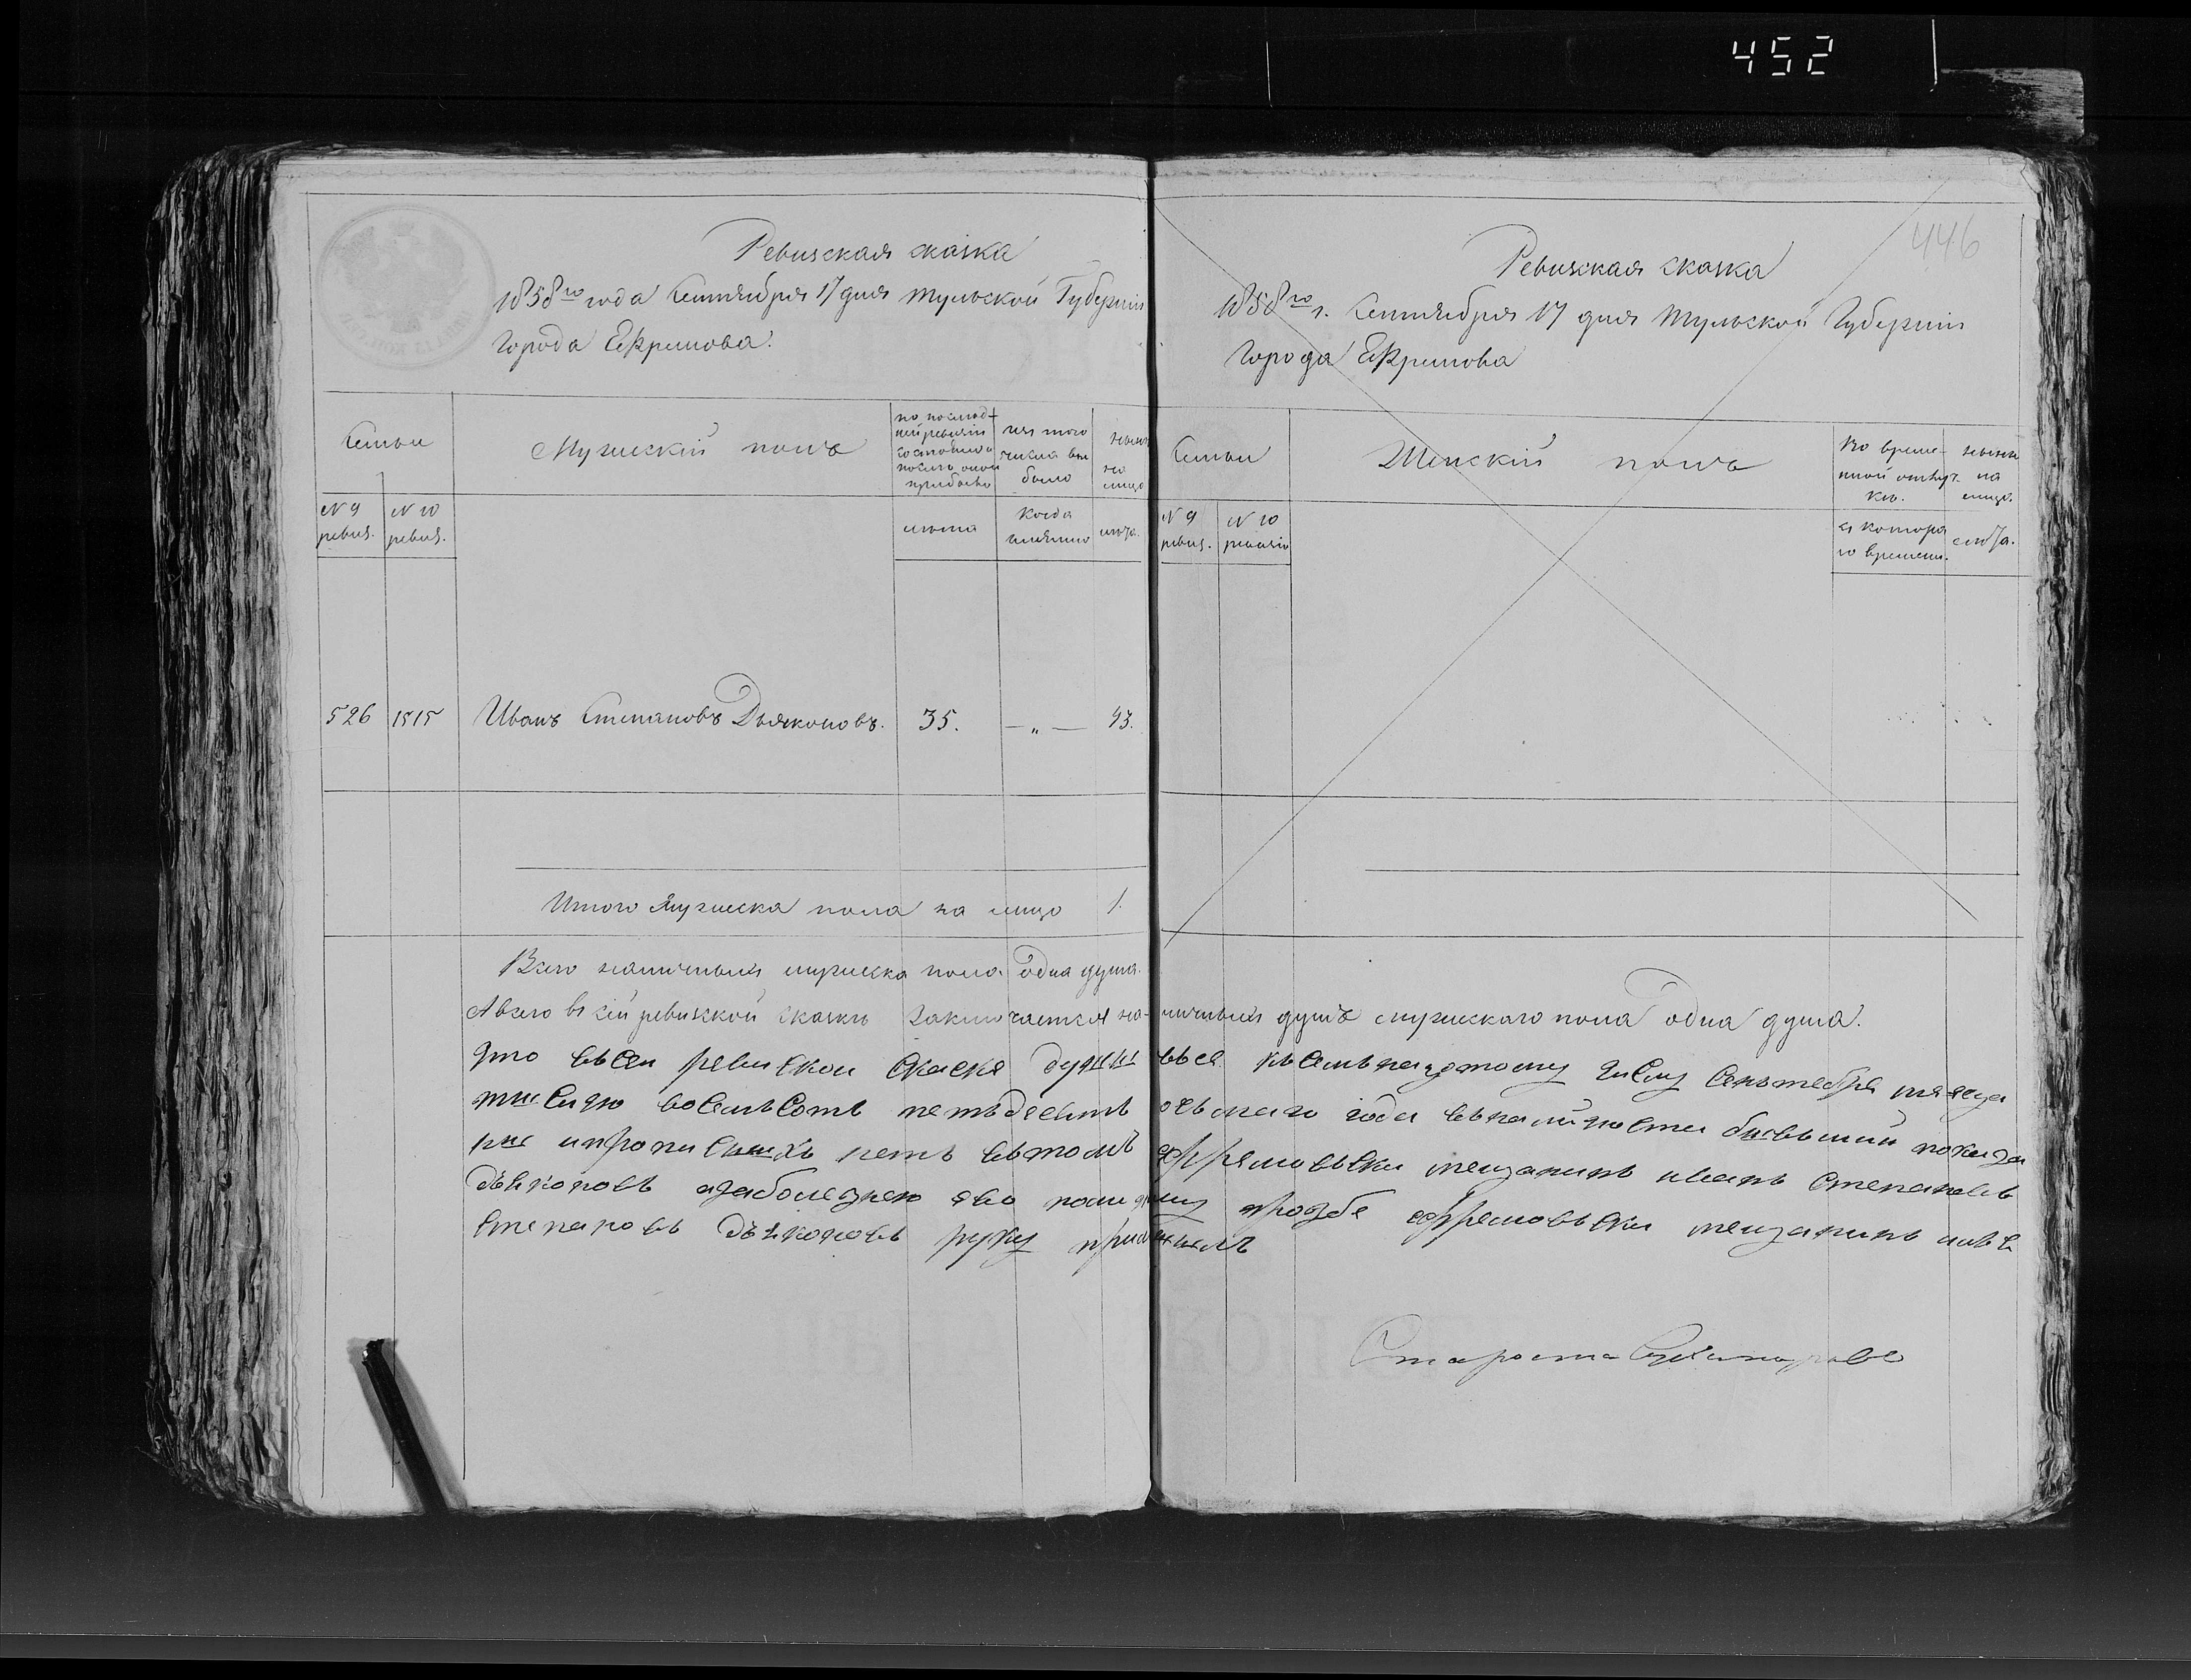 452
446
Ревизская сказка
1858го года Сентября 17 дня Тульской Губерніи
Города Ефремова.
Семьи
Мужескій полъ
по послѣд-
ней ревизіи
состояло и
послѣ оной
прибыло
изъ того
числа вы
было
нынѣ
на
лицо
№ 9
ревиз.
№ 10
ревиз.
лѣта
Когда
имянно
лѣта.
526 1515 Иванъ Степановъ Дьяконовъ. 35. — „ — 43.
Итого мужеска пола на лицо 1.
Ревизская сказка
1858го г. Сентября 17 дня Тульской Губерніи
Города Ефремова
Семьи
Женскій полъ
Во време-
нной отлуч-
кѣ.
нынѣ
на
лицо.
№ 9
ревиз.
№ 10
ревизіи
съ котора
го времени.
лѣта.
Всего наличныхъ мужеска пола одна душа.
А всего въ сей ревизкой сказкѣ заключается на-личныхъ душъ мужескаго пола одна душа.
Что всеи ревискои скаске души все ксемьнацотому числу Сеньтебря месеца
тысичю восемьсотъ петьдеситъ осьмаго года вналичности бывьший показа
ны ипрописныхъ нетъ втомъ ефремовьски мещанинъ иванъ Степановъ
дьяконовъ азаболезнею ево прозбе ефремовьски мещанинъ
Степановъ дьяконовъ руку приложилъ
Староста